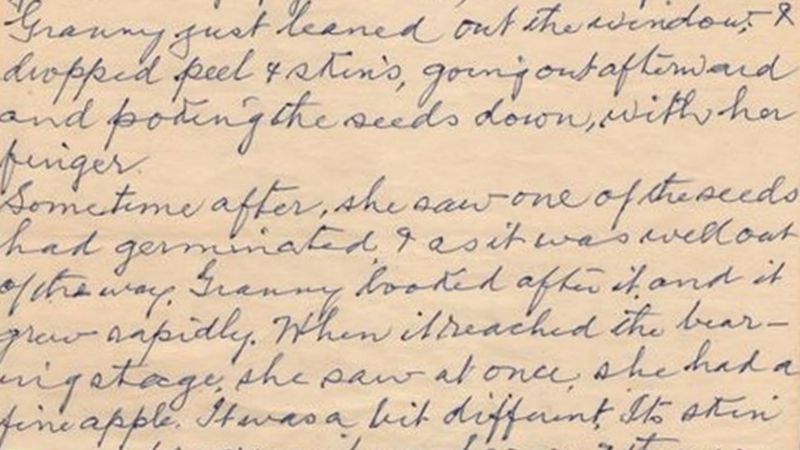 Granny just leaned out the window, &
dropped peel & skins, going out afterward
and poking the seeds down, with her
finger.
Sometime after, she saw one of the seeds
had germinated & as it was well out
of the way, Granny looked after it, and it
grew rapidly. When it reached the bear-
ing stage, she saw at once, she had a
fine apple. It was a bit different, Its skin